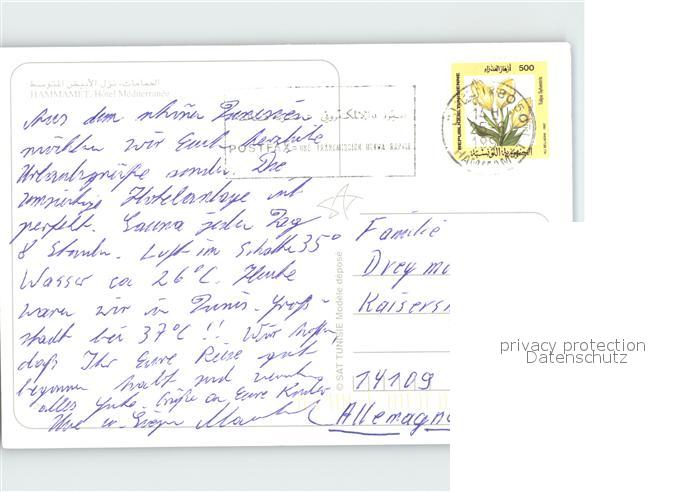 الحمامات، نزل الأبيض المتوسط
HAMMAMET, Hôtel Méditerranée
Aus dem schönen Tunesien
möchten wir Euch herzliche
Urlaubsgrüße senden. Die
Hotelanlage ist
perfekt. Sauna jeden Tag
8 Stunden. Luft im Schatten 35°
Wasser ca 26°C. Heute
waren wir in Tunis. Groß-
stadt bei 37°C!! Wir hoffen,
daß Ihr Eure Reise gut
beginnen
alles Gute. Grüße an Eure Kinder
POSTEFAX= UNE TRANSMISSION
REPUBLIQUE TUNISIENNE
500
الجمهورية التونسية
© SAT TUNISIE Modèle déposé
Familie
Drey
Kaisers
14109
Allemagne
privacy protection
Datenschutz